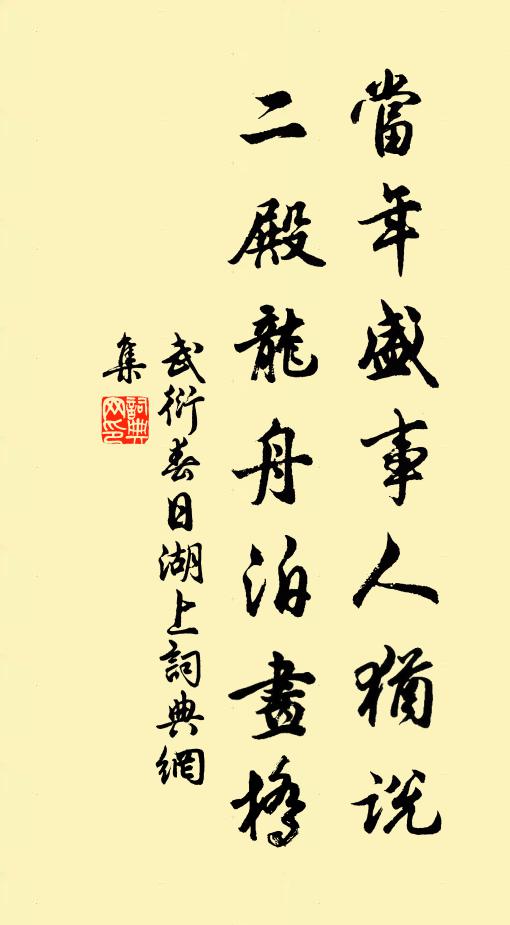 當年盛事人猶說
二殿龍舟泊畫橋
武衍春日湖上詞典網
集
詞典網印